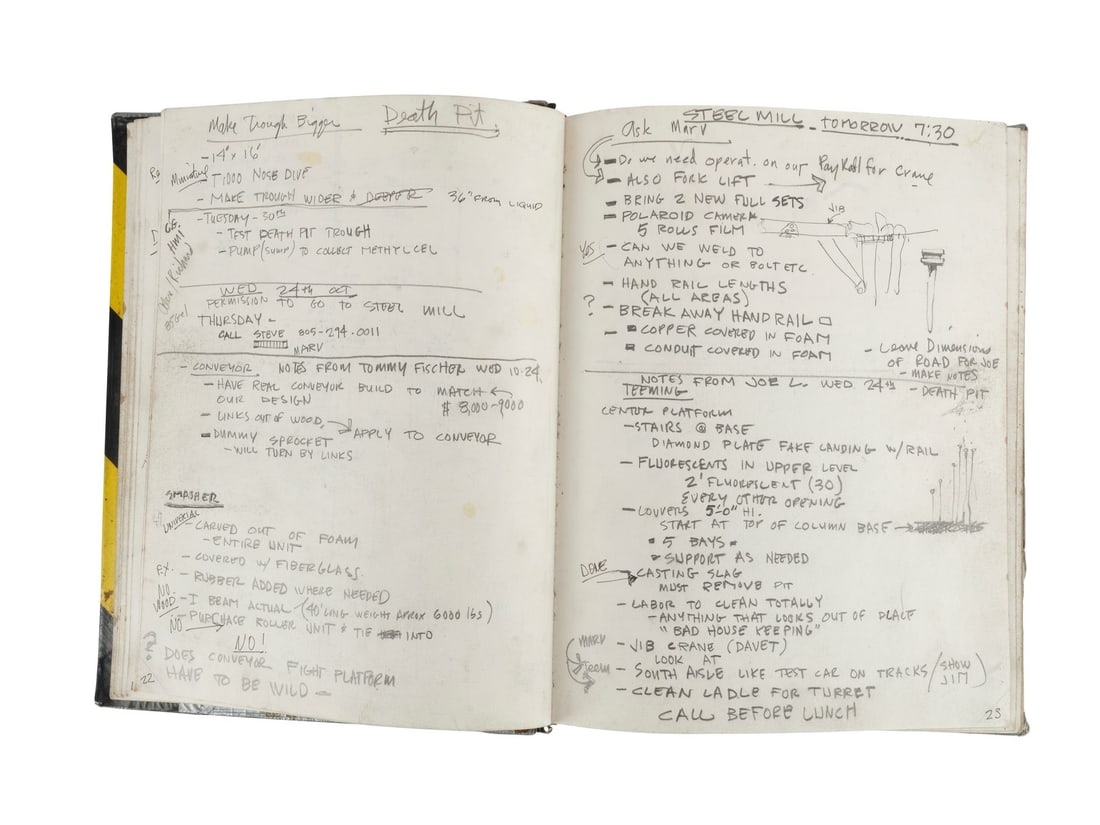 Make Trough Bigger   Death Pit.
- 14' x 16'
Miniature
T1000 NOSE DIVE
- MAKE TROUGH WIDER & DEEPER   36" FROM LIQUID
- TUESDAY - 30th
- TEST DEATH PIT TROUGH
- PUMP (SUMP) TO COLLECT METHYLCEL
WED 24th OCT
PERMISSION TO GO TO STEEL MILL
THURSDAY -
CALL STEVE 805-294-0011
MARV
- CONVEYOR. NOTES FROM TOMMY FISCHER WED 10-24,
- HAVE REAL CONVEYOR BUILD TO MATCH
OUR DESIGN   $ 8,000-9000
- LINKS OUT OF WOOD
- DUMMY SPROCKET   APPLY TO CONVEYOR
- WILL TURN BY LINKS
SMASHER
UNIVERSAL
- CARVED OUT OF FOAM
- ENTIRE UNIT
- COVERED W/ FIBERGLASS.
F.X. - RUBBER ADDED WHERE NEEDED
NO WOOD - I BEAM ACTUAL (40' LING WEIGHT APROX 6000 lbs)
NO PURCHASE ROLLER UNIT & TIE INTO
NO!
DOES CONVEYOR FIGHT PLATFORM
HAVE TO BE WILD -
22
STEEL MILL - tomorrow 7:30
Ask Marv
- Do we need operat. on our PayRoll for Crane
- ALSO FORK LIFT
- BRING 2 NEW FULL SETS
- POLAROID CAMERA
5 ROLLS FILM
JIB
YES - CAN WE WELD TO
ANYTHING OR BOLT ETC.
- HAND RAIL LENGTHS
(ALL AREAS)
? - BREAK AWAY HANDRAIL
- COPPER COVERED IN FOAM
CONDUIT COVERED IN FOAM
- Leave Dimensions
OF ROAD FOR JOE
- MAKE NOTES
- DEATH PIT
NOTES FROM JOE L. WED 24th
TEEMING
CENTUX PLATFORM
- STAIRS @ BASE
DIAMOND PLATE FAKE LANDING W/RAIL
- FLUORESCENTS IN UPPER LEVEL
2' FLUORESCENT (30)
EVERY OTHER OPENING
- LOUVERS 5'-0" HI.
START AT TOP OF COLUMN BASE
5 BAYS
SUPPORT AS NEEDED
DONE
CASTING SLAG
MUST REMOVE PIT
- LABOR TO CLEAN TOTALLY
- ANYTHING THAT LOOKS OUT OF PLACE
"BAD HOUSE KEEPING"
MARV - JIB CRANE (DAVET)
LOOK AT
Teem - SOUTH AISLE LIKE TEST CAR ON TRACKS (SHOW JIM)
- CLEAN LADLE FOR TURRET
CALL BEFORE LUNCH
23